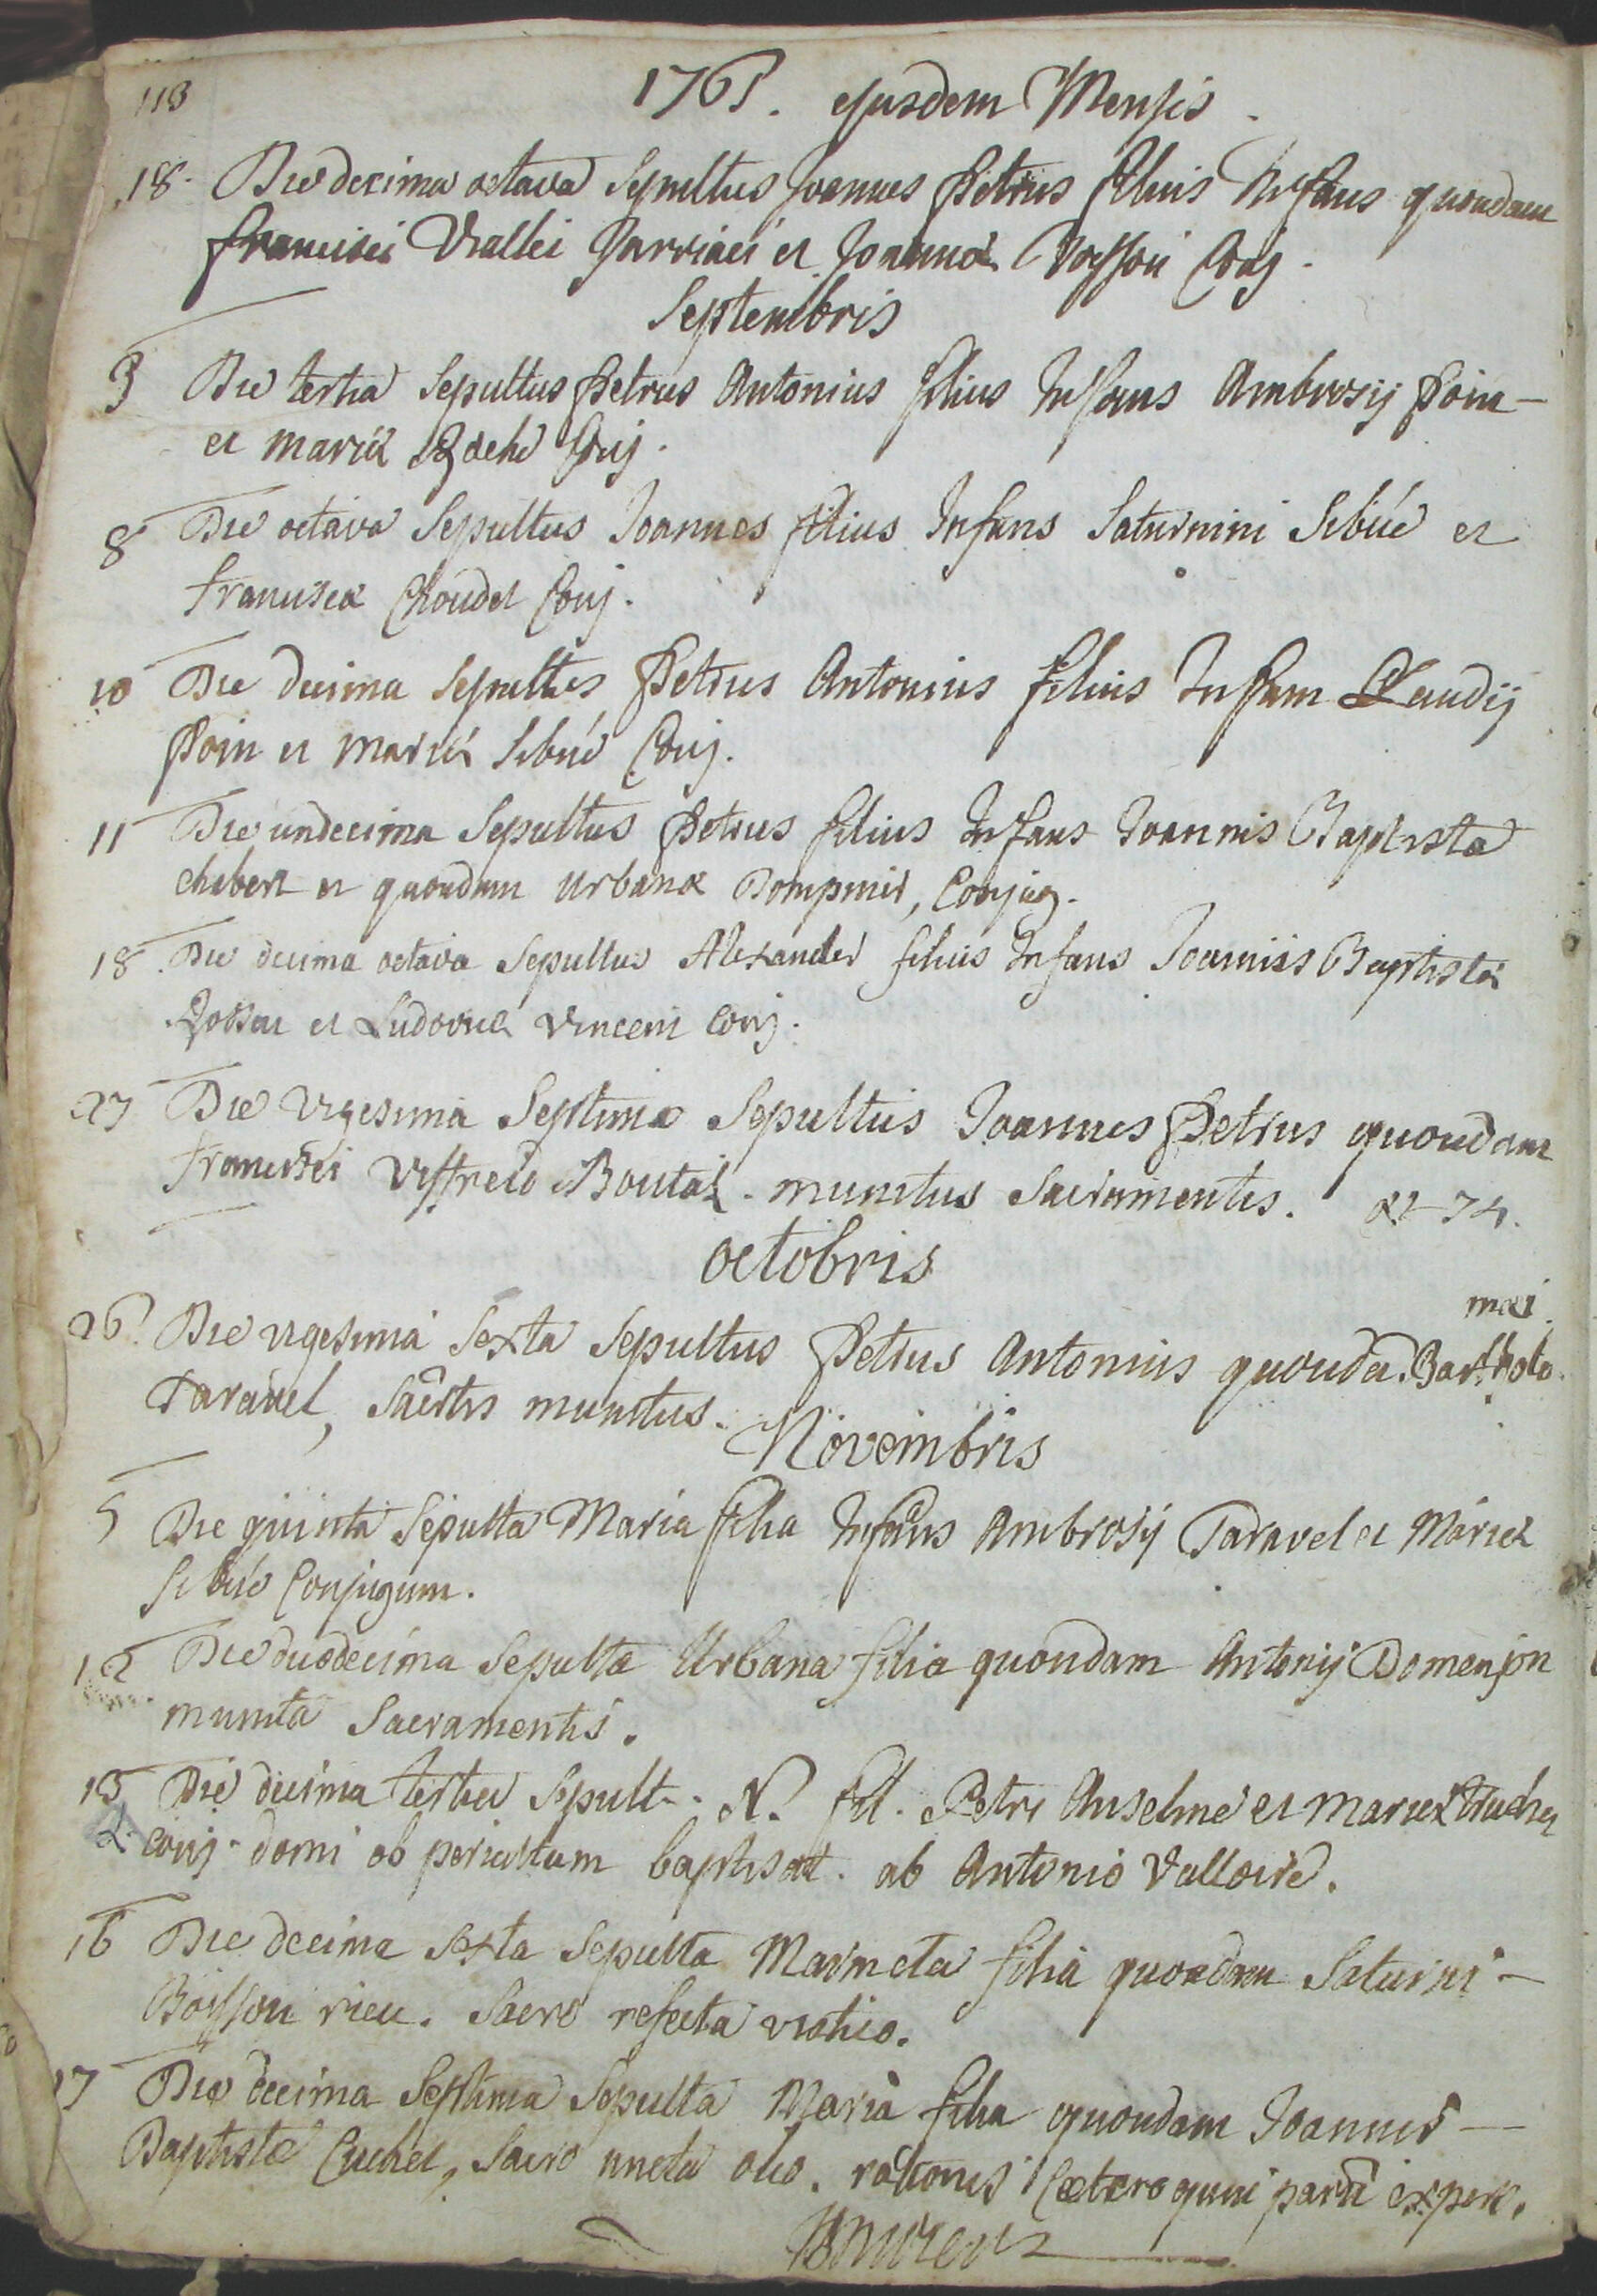 113
1761. ejusdem Mensis.
18. Die decima octava Sepultus Joannes Petrus filius Infans quondam
francisci Viallei Jarriaci et Joannæ Coug.
Septembris
3 Die tertia Sepultus Petrus Antonius filius Infans Ambrosij Poin-
et mariæ Conj.
8 Die octava Sepultus Joannes filius Infans Saturnini Sibüé et
franciscæ Choudet Conj.
10 Die decima Sepultus Petrus Antonius filius Infans Claudij
Poin et mariæ Sibué Conj.
11 Die undecima Sepultus Petrus filius Infans Joannis Baptistæ
chabert et quondam Urbanæ Dompnié, Conjug.
18. Die decima octava Sepultus Alexander filius Infans Joannis Baptistæ
et Ludovicæ Vincent Conj.
27 Die Vigesima Septima Sepultus Joannes Petrus quondam
francisci Viffreid Boutaz. munitus Sacramentis. æt 74.
octobris
26. Die vigesima Sexta Sepultus Petrus Antonius quonda. Bartholo-
mæi
Taravel, Sacrtis munitus.
Novembris
5 Die quinta Sepulta Maria filia Infans Ambrosij Taravel et Mariæ
Sibüé Conjugum.
12 Die duodecima Sepulta Urbana filia quondam Antonij Domenjon
munita Sacramentis.
13 Die decima tertia Sepult-. N. fil. Petri Anselme et Mariæ
Conj. domi ob periculum baptisat. ab Antonio Valloire.
16 Die decima Sexta Sepulta Marineta filia quondam Saturni-
Boisson rieu. Sacro refecta viatico.
17 Die decima Septima Sepulta Maria filia quondam Joannis-
Baptistæ Cuchet, Sacro uncta oleo. rationis Cæteroquin parū expers.